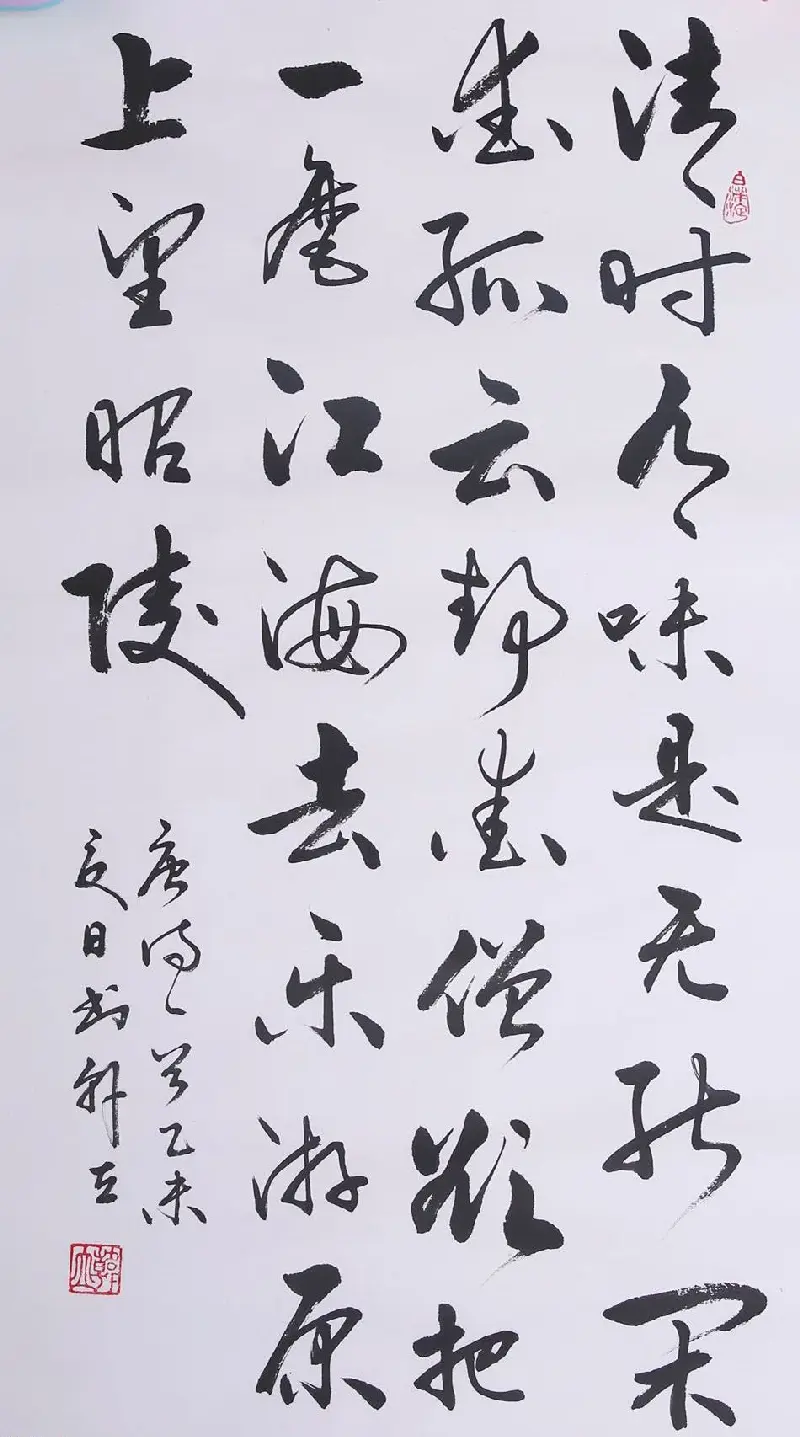 清时有味是无能闲
爱孤云静爱僧欲把
一麾江海去乐游原
上望昭陵
唐诗一首乙未
夏日书韩